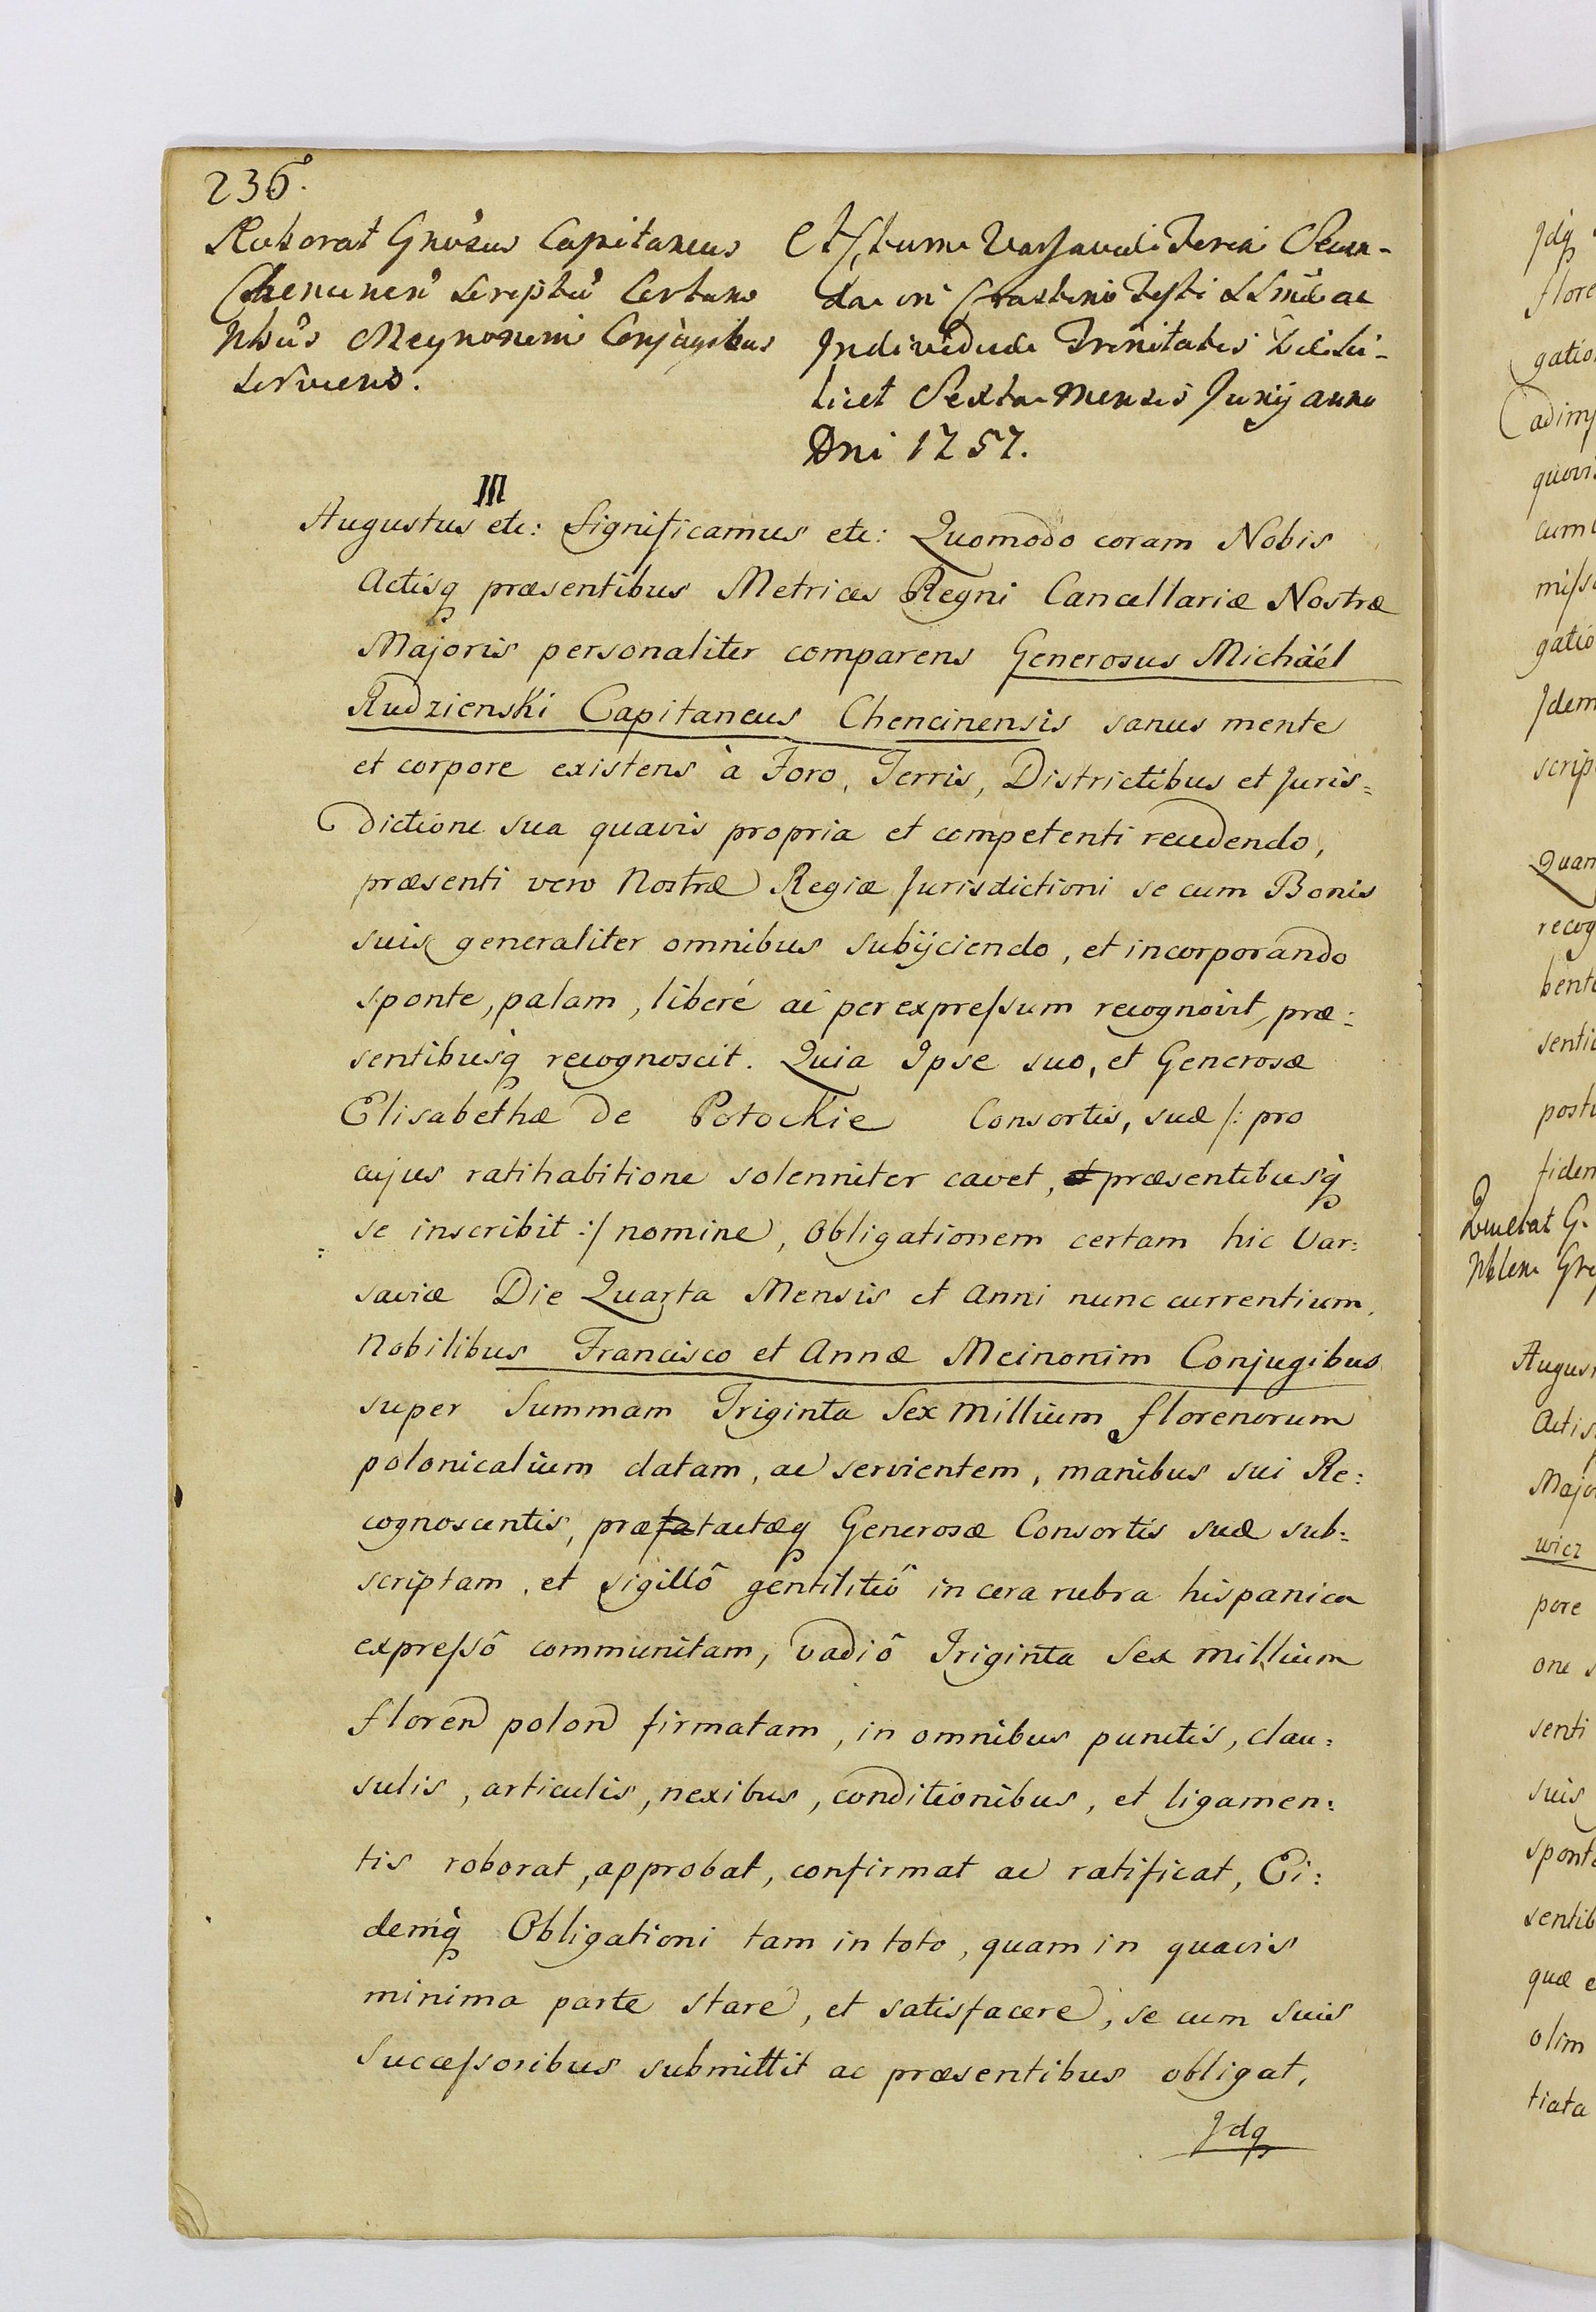 236.
Roborat Gnosus Capitaneus
Chencinen Scriptu Certum
Nbus Meynonim Conjugibus
serviens.
Actum Varsaviae Feria Secun-
da in Crastino Festi SSmae ac
Individuae Trinitatis Sci-
licet Sexta Mensis Junij anno
Dni 1757.
III
Augustus etc: Significamus etc: Quomodo coram Nobis
Actisq præsentibus Metrices Regni Cancellariæ Nostræ
Majoris personaliter comparens Generosus Michäél
Rudzienski Capitaneus Chencinensis sanus mente
et corpore existens à Foro, Terris, Districtibus et Juris=
dictione sua quavis propria et competenti recedendo,
præsenti vero Nostræ Regiæ Jurisdictioni se cum Bonis
suis generaliter omnibus subijciendo, et incorporando
sponte, palam, liberé ac per expreſsum recognovit, præ=
sentibusq recognoscit. Quia Ipse suo, et Generosæ
Elisabethæ de Potockie Consortis, suæ /: pro
cujus ratihabitione solenniter cavet, et præsentibusq
se inscribit :/ nomine, Obligationem certam hic Var=
saviæ Die Quarta Mensis et Anni nunc currentium,
Nobilibus Francisco et Annæ Meinonim Conjugibus
super Summam Triginta Sex Millium florenorum
polonicalium datam, ac servientem, manibus sui Re=
cognoscentis, præfatactæq Generosæ Consortis suæ sub=
scriptam, et sigillô gentilitiô in cera rubra hispanica
expreſsô communitam, vadiô Triginta Sex millium
floren polon firmatam, in omnibus punctis, clau=
sulis, articulis, nexibus, conditionibus, et ligamen=
tis roborat, approbat, confirmat ac ratificat, Ei=
demq Obligationi tam in toto, quam in quavis
minima parte stare, et satisfacere, se cum suis
Succeſsoribus submittit ac præsentibus obligat,
Idq
Jdq
flore
gatio
adimp
quovis
cum
miſs
gatio
Idem
scrip
Quam
recog
bent
senti
post
fidem
Augus
Actis
Majo
wicz
pore
one s
senti
suis
spont
sentib
quæ e
olim
tiata